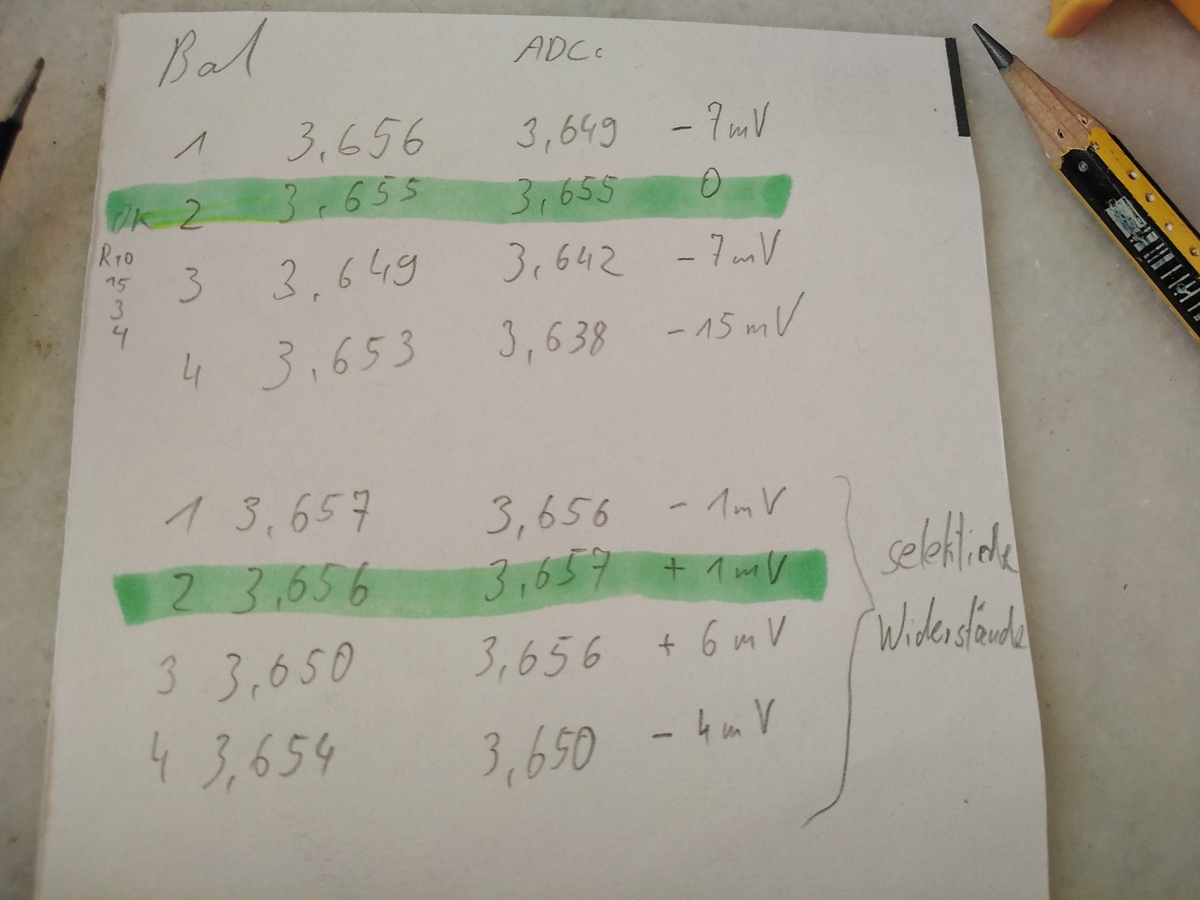 Bal ADCc
1 3,656 3,649 -7mV
OK 2 3,655 3,655 0
R10
15
3
4
3 3,649 3,642 -7mV
4 3,653 3,638 -15mV
1 3,657 3,656 -1mV
2 3,656 3,657 +1mV
3 3,650 3,656 +6mV
4 3,654 3,650 -4mV
Widerstände